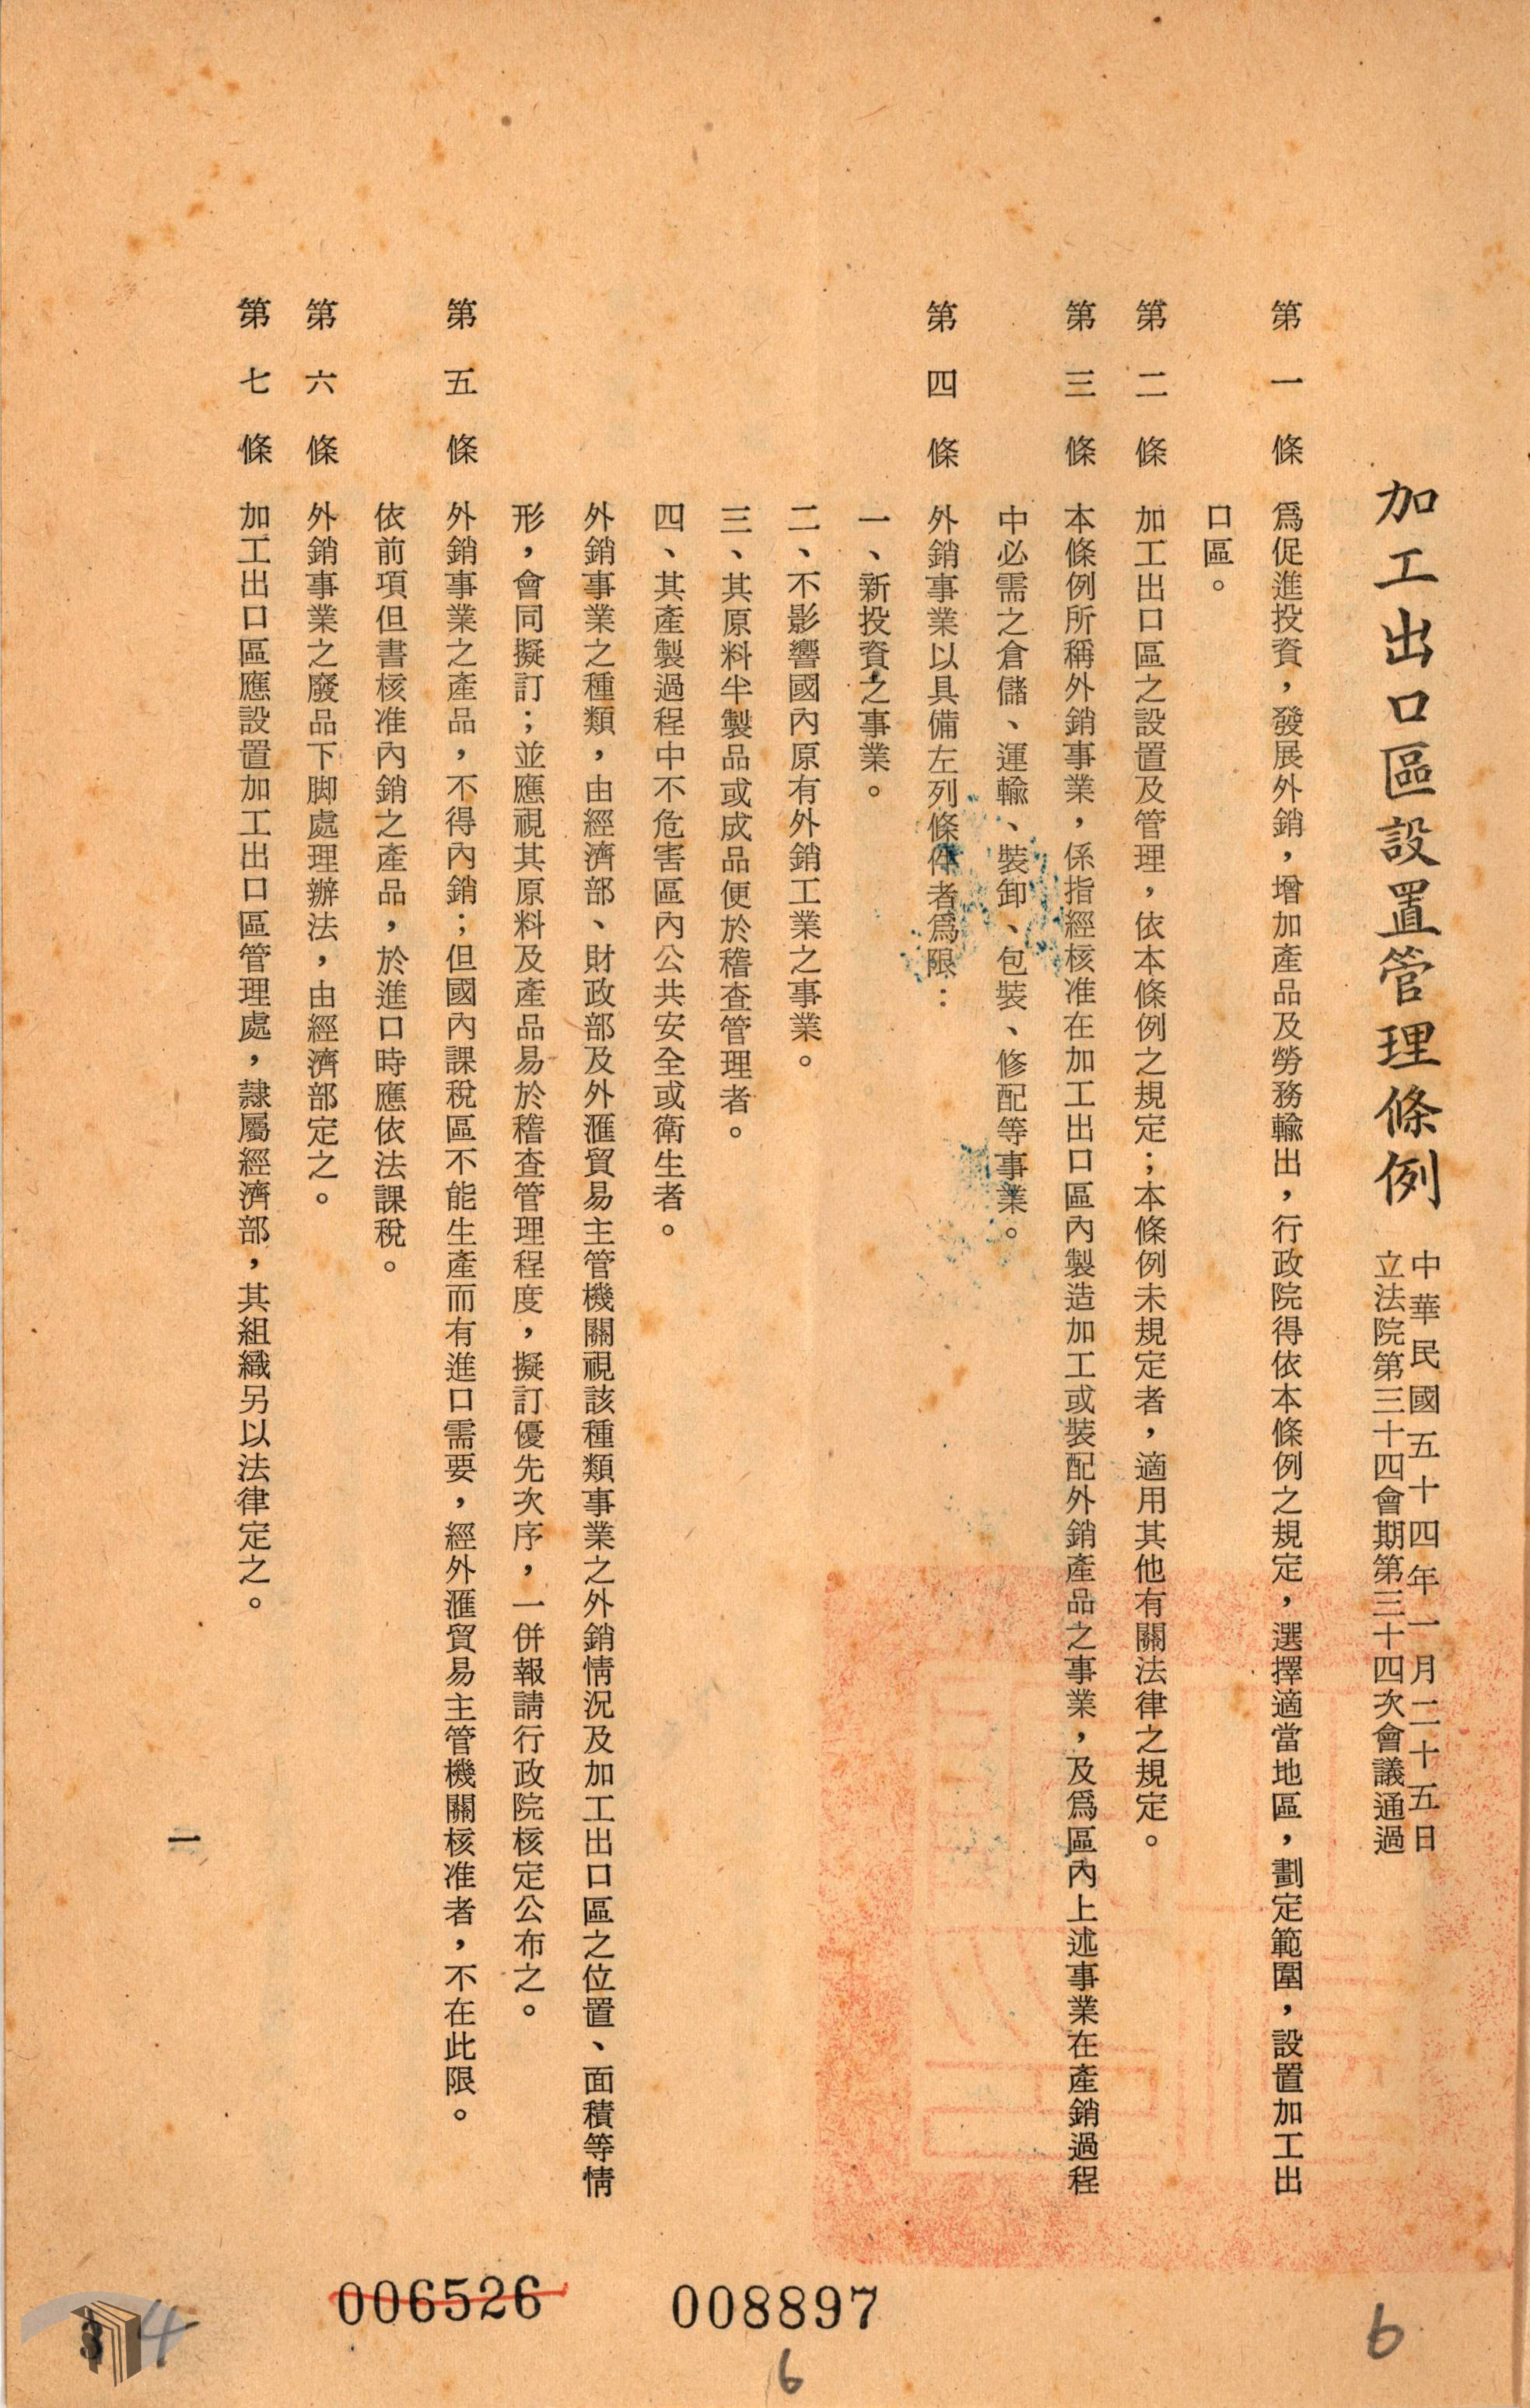 加工出口區設置管理條例
中華民國五十四年一月二十五日
立法院第三十四會期第三十四次會議通過
第一條　為促進投資，發展外銷，增加產品及勞務輸出，行政院得依本條例之規定，選擇適當地區，劃定範圍，設置加工出
口區。
第二條　加工出口區之設置及管理，依本條例之規定；本條例未規定者，適用其他有關法律之規定。
第三條　本條例所稱外銷事業，係指經核准在加工出口區內製造加工或裝配外銷產品之事業，及為區內上述事業在產銷過程
中必需之倉儲、運輸、裝卸、包裝、修配等事業。
第四條　外銷事業以具備左列條件者為限：
一、新投資之事業。
二、不影響國內原有外銷工業之事業。
三、其原料半製品或成品便於稽查管理者。
四、其產製過程中不危害區內公共安全或衛生者。
外銷事業之種類，由經濟部、財政部及外滙貿易主管機關視該種類事業之外銷情況及加工出口區之位置、面積等情
形，會同擬訂；並應視其原料及產品易於稽查管理程度，擬訂優先次序，一併報請行政院核定公布之。
第五條　外銷事業之產品，不得內銷；但國內課稅區不能生產而有進口需要，經外滙貿易主管機關核准者，不在此限。
依前項但書核准內銷之產品，於進口時應依法課稅。
第六條　外銷事業之廢品下脚處理辦法，由經濟部定之。
第七條　加工出口區應設置加工出口區管理處，隸屬經濟部，其組織另以法律定之。
一
006526
008897
6
6
4